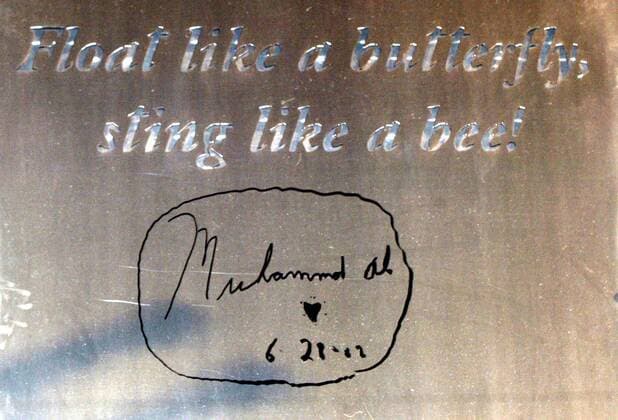 Float like a butterfly,
sting like a bee!
Muhammad Ali
6 28-02